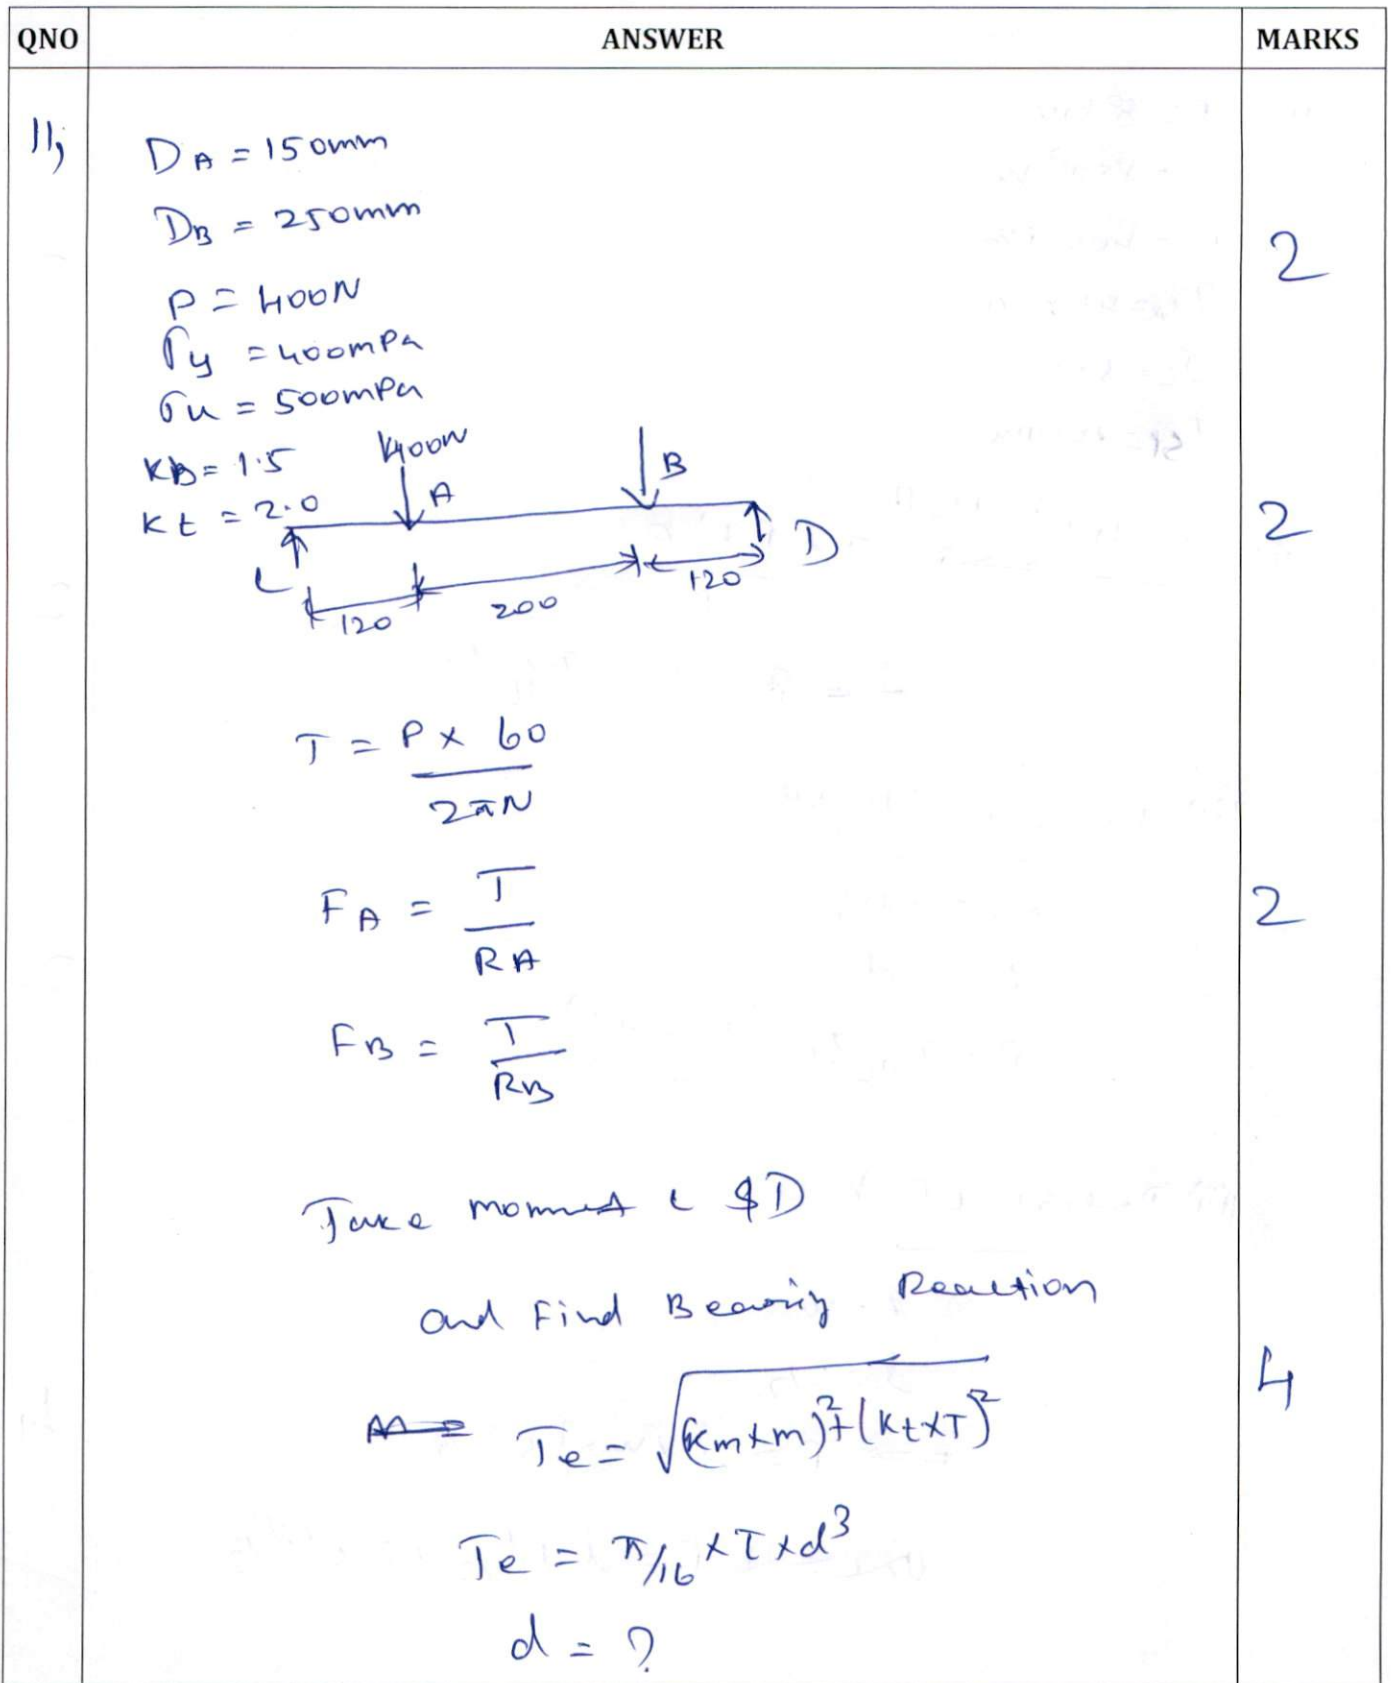 QNO ANSWER MARKS
11, D_A = 150mm
D_B = 250mm
2
P = 400N
σy = 400mPa
σu = 500mPa
KB = 1.5 400N
B
A
Kt = 2.0
2
D
C
120
200
120
T = P × 60
2πN
F_A = T
R_A
2
F_B = T
R_B
Take moment C & D
and Find Bearing Reaction
4
Te = √(Km×m)² + (Kt×T)²
Te = π/16 × τ × d³
d = ?